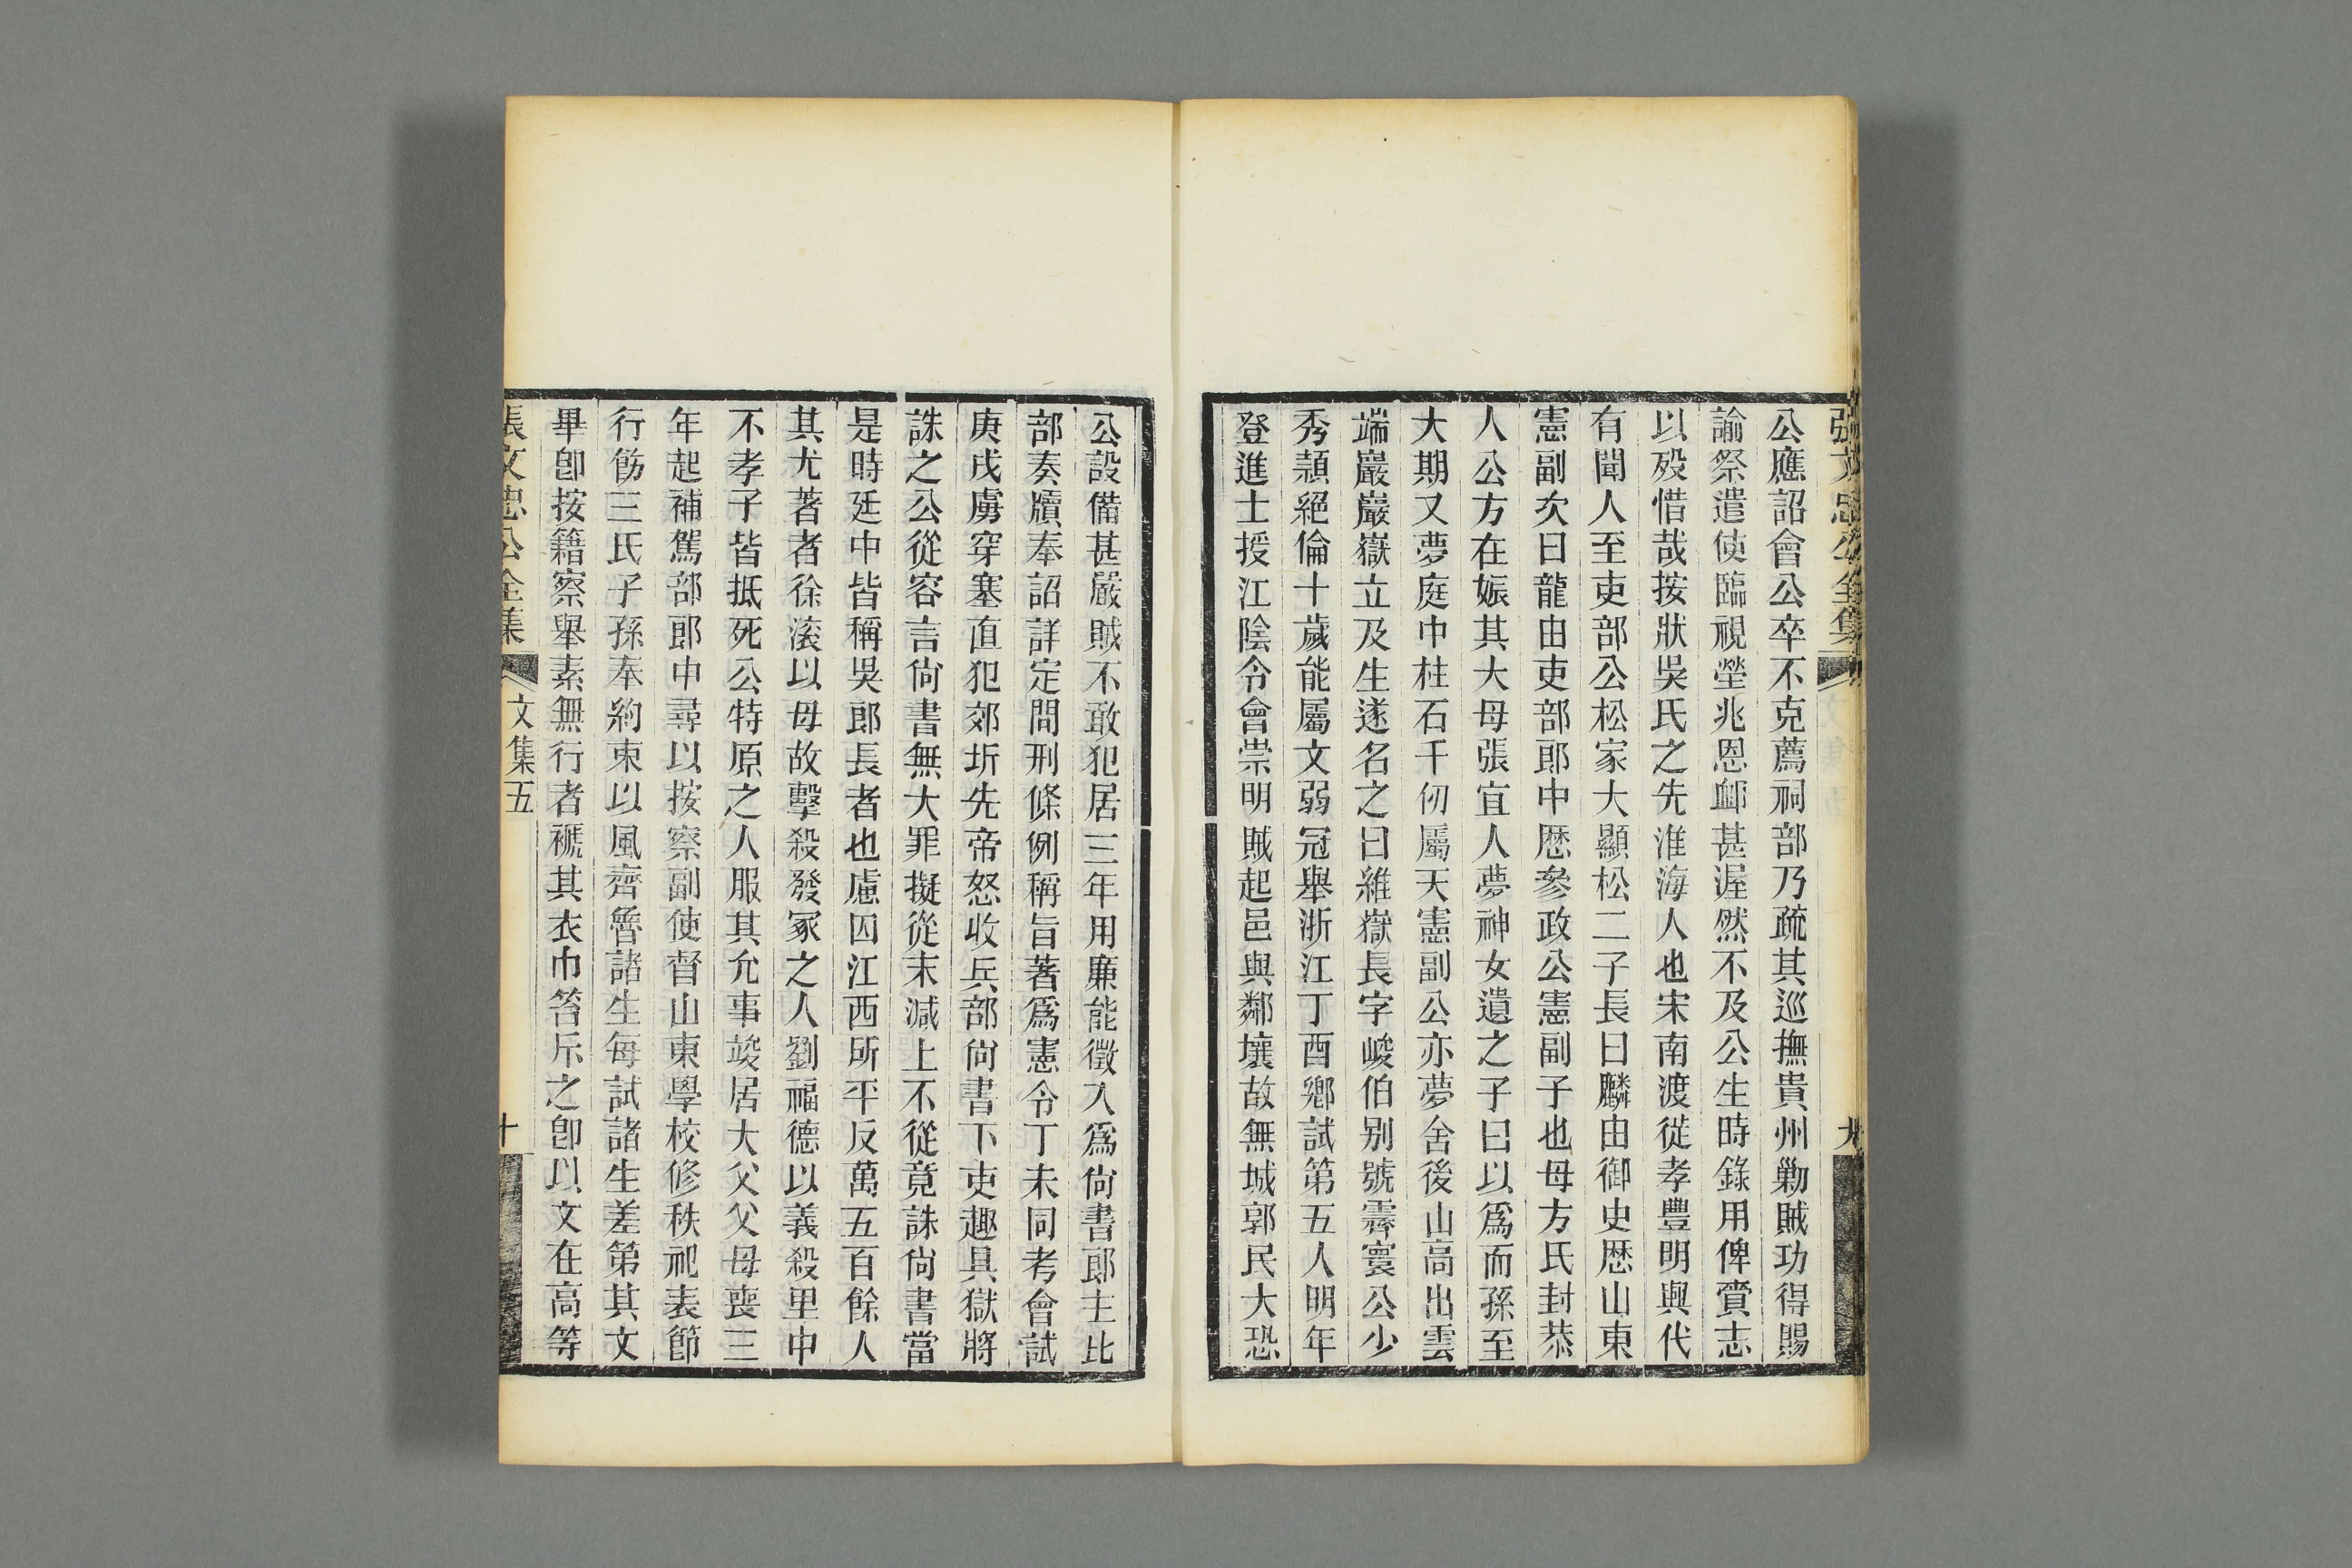 張文忠公全集
公應詔會公卒不克薦祠部乃疏其巡撫貴州勦賊功得賜
諭祭遣使臨視塋兆恩䘏甚渥然不及公生時錄用俾賫志
以歿惜哉按狀吳氏之先淮海人也宋南渡徙孝豐明興代
有聞人至吏部公松家大顯松二子長曰麟由御史歴山東
憲副次曰龍由吏部郎中歴參政公憲副子也母方氏封恭
人公方在娠其大母張宜人夢神女遺之子曰以爲而孫至
大期又夢庭中柱石千仞屬天憲副公亦夢舍後山高出雲
端巖巖嶽立及生遂名之曰維嶽長字峻伯别號霽寰公少
秀頴絕倫十歲能屬文弱冠舉浙江丁酉鄉試第五人明年
登進士授江陰令會崇明賊起邑與鄰壤故無城郭民大恐
公設備甚嚴賊不敢犯居三年用廉能徵入爲尙書郎主比
部奏牘奉詔詳定問刑條例稱旨著爲憲令丁未同考會試
庚戌虜穿塞直犯郊圻先帝怒收兵部尙書下吏趣具獄將
誅之公從容言尙書無大罪擬從末減上不從竟誅尙書當
是時廷中皆稱吳郎長者也慮囚江西所平反萬五百餘人
其尤著者徐滚以母故擊殺發冢之人劉福德以義殺里中
不孝子皆抵死公特原之人服其允事竣居大父父母喪三
年起補駕部郎中尋以按察副使督山東學校修秩祀表節
行飭三氏子孫奉約束以風齊魯諸生每試諸生差第其文
畢卽按籍察舉素無行者褫其衣巾笞斥之卽以文在高等
張文忠公全集
文集五
十